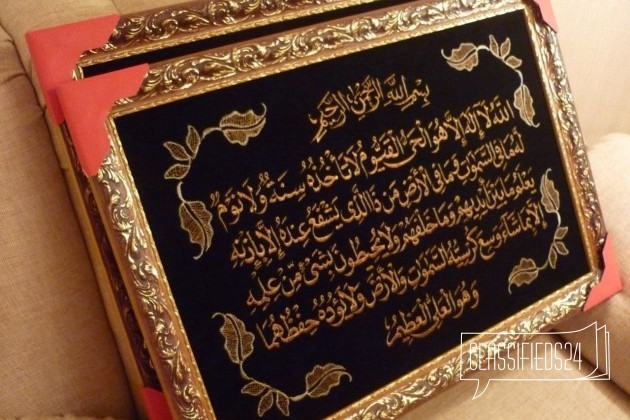 بِسْمِ اللَّهِ الرَّحْمَٰنِ الرَّحِيمِ
اللَّهُ لَا إِلَٰهَ إِلَّا هُوَ الْحَيُّ الْقَيُّومُ لَا تَأْخُذُهُ سِنَةٌ وَلَا نَوْمٌ
لَهُ مَا فِي السَّمَٰوَاتِ وَمَا فِي الْأَرْضِ مَنْ ذَا الَّذِي يَشْفَعُ عِنْدَهُ إِلَّا بِإِذْنِهِ
يَعْلَمُ مَا بَيْنَ أَيْدِيهِمْ وَمَا خَلْفَهُمْ وَلَا يُحِيطُونَ بِشَيْءٍ مِنْ عِلْمِهِ
إِلَّا بِمَا شَاءَ وَسِعَ كُرْسِيُّهُ السَّمَٰوَاتِ وَالْأَرْضَ وَلَا يَئُودُهُ حِفْظُهُمَا
وَهُوَ الْعَلِيُّ الْعَظِيمُ
CLASSIFIEDS24